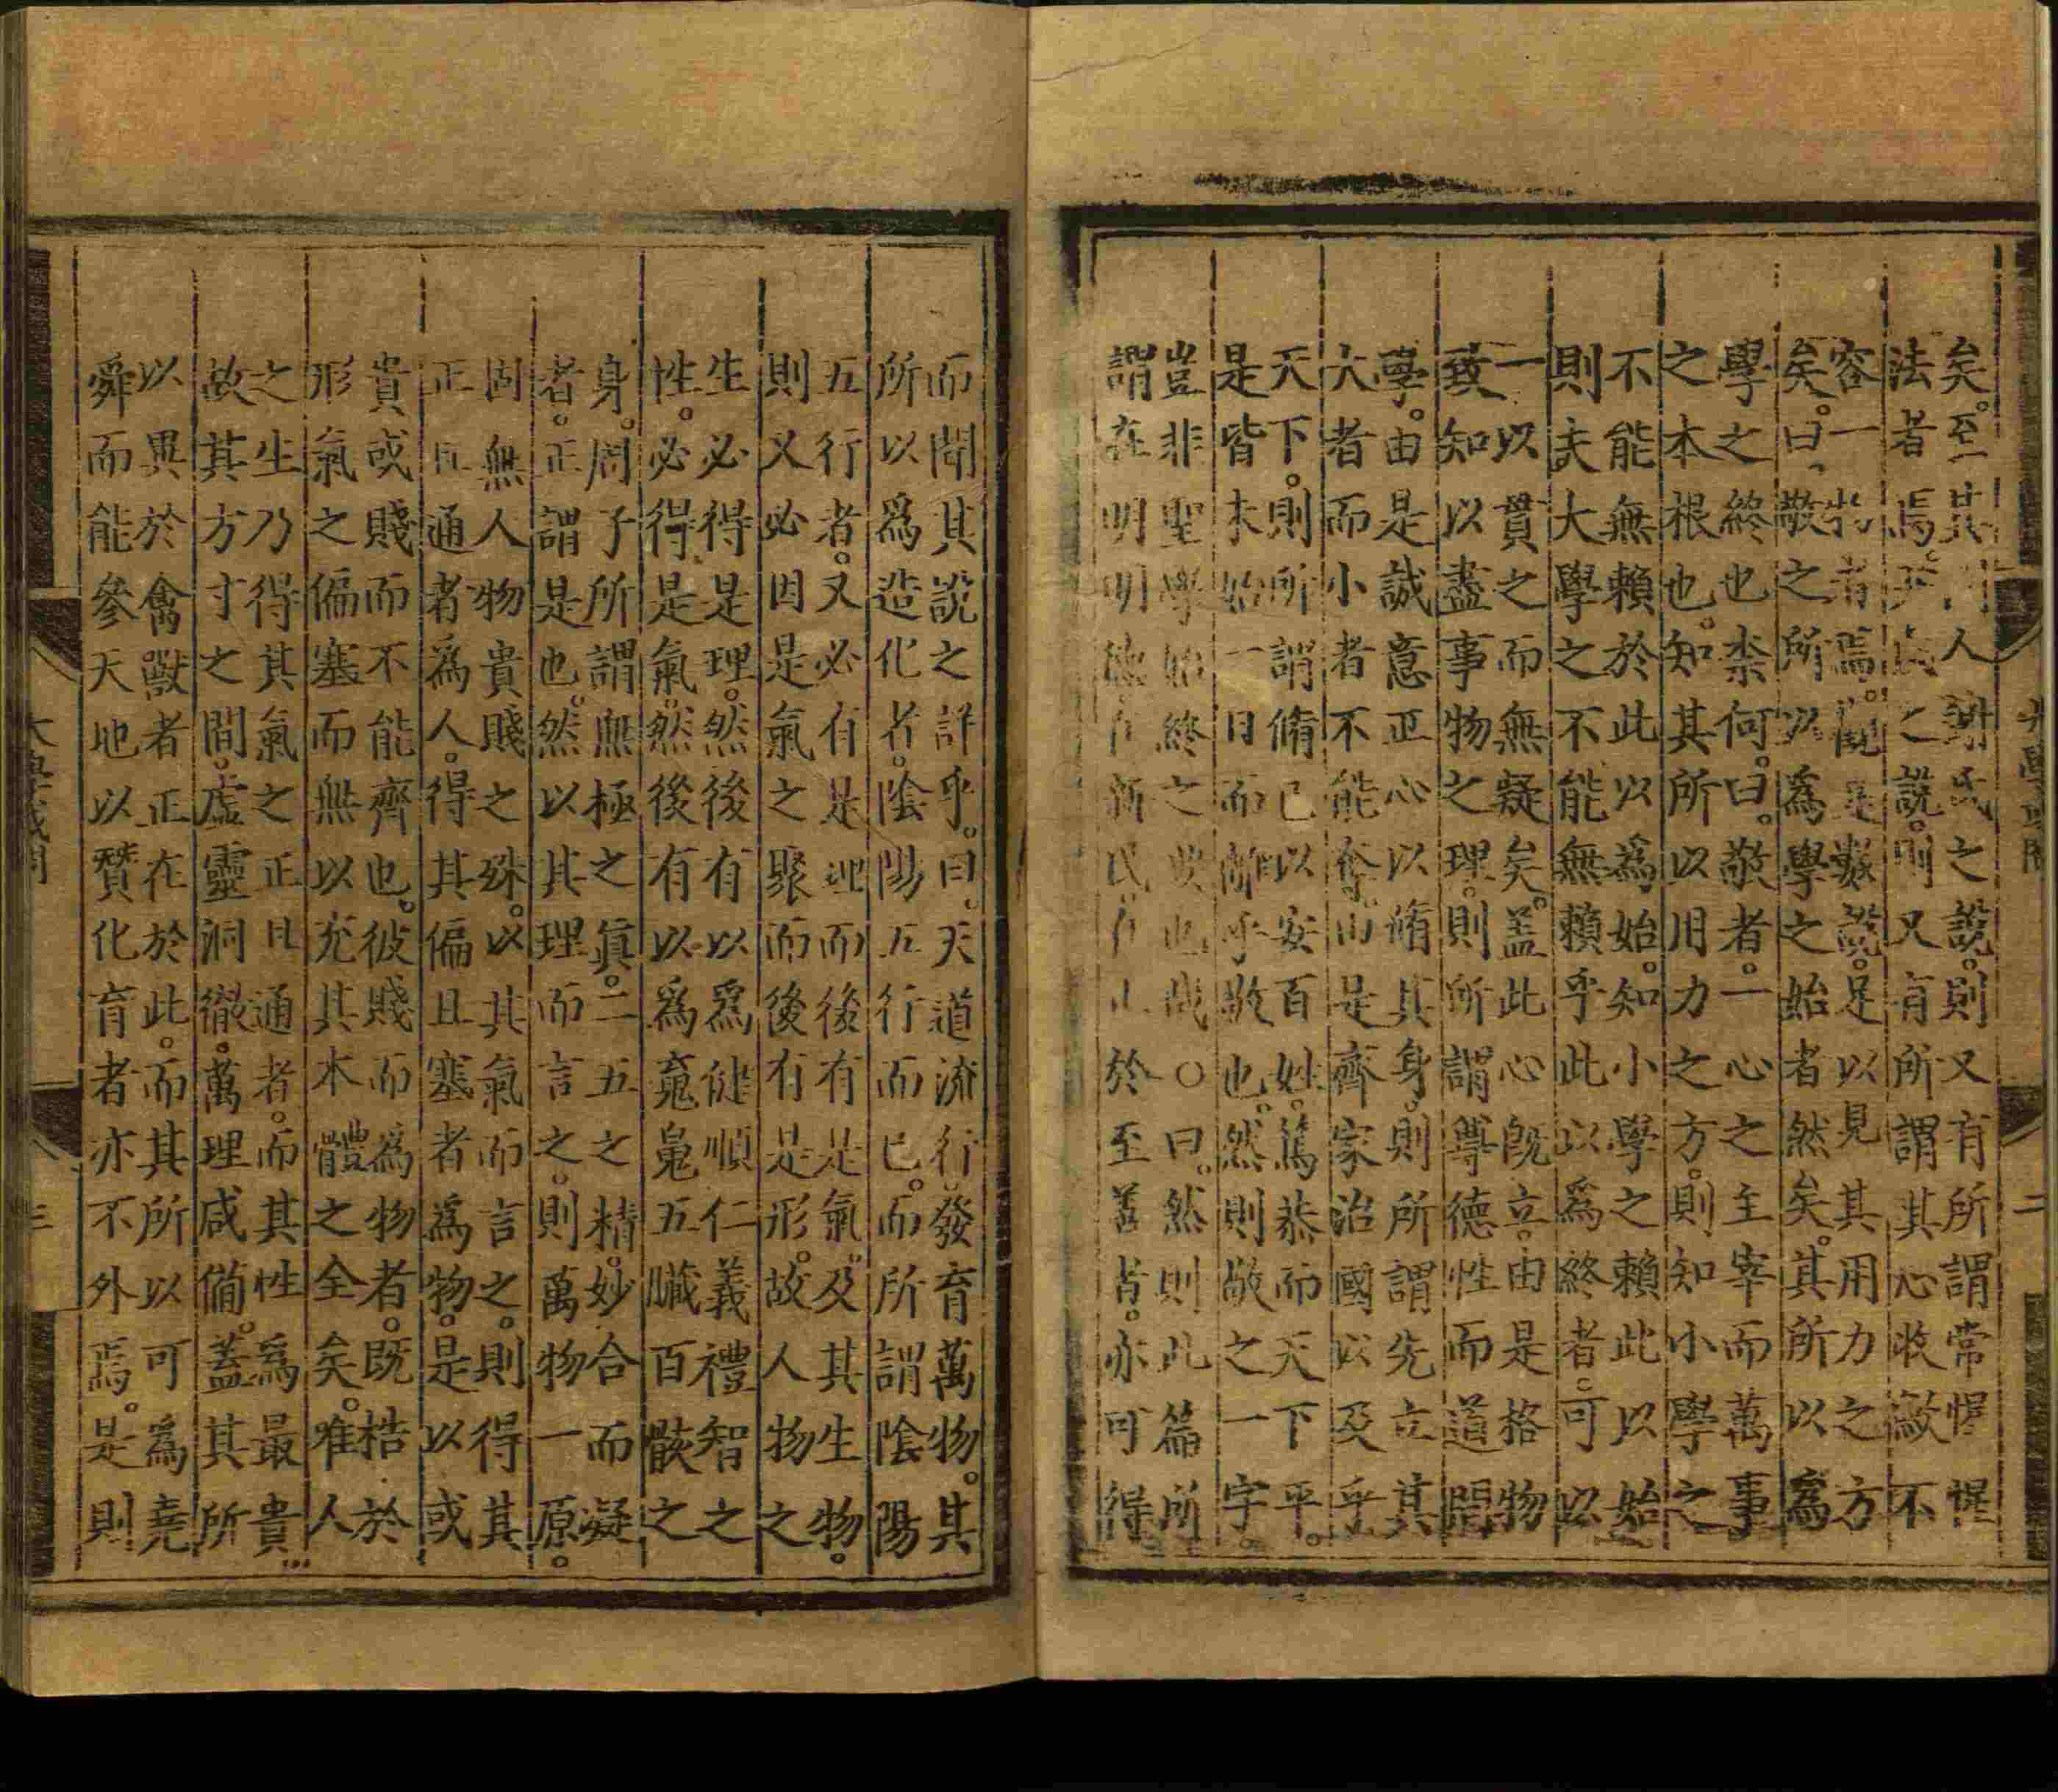 矣。至其門人謝氏之說。則又有所謂常惺惺
法者焉。尹氏之說。則又有所謂其心收斂不
容一物者焉。觀是數說。足以見其用力之方
矣。曰、敬之所以為學之始者然矣。其所以為
學之終也柰何。曰。敬者。一心之主宰而萬事
之本根也。知其所以用力之方。則知小學之
不能無賴於此以為始。知小學之賴此以始
則夫大學之不能無賴乎此以為終者。可以
一以貫之而無疑矣。盖此心旣立。由是格物
致知以盡事物之理。則所謂尊德性而道問
學。由是誠意正心以脩其身。則所謂先立其
大者而小者不能奪。由是齊家治國以及乎
天下。則所謂脩己以安百姓。篤恭而天下平。
是皆未始一日而離乎敬也。然則敬之一字。
豈非聖學始終之要也哉〇曰。然則此篇所
謂在明明德在新民在止於至善者。亦可得
大學或問 二
而聞其說之詳乎。曰。天道流行。發育萬物。其
所以爲造化者。陰陽五行而已。而所謂陰陽
五行者。又必有是理而後有是氣。及其生物。
則又必因是氣之聚而後有是形。故人物之
生必得是理。然後有以爲健順仁義禮智之
性。必得是氣。然後有以爲䰟魄五臟百骸之
身。周子所謂無極之眞。二五之精。妙合而凝
者。正謂是也。然以其理而言之。則萬物一原。
固無人物貴賤之殊。以其氣而言之。則得其
正且通者爲人。得其偏且塞者爲物。是以或
貴或賤而不能齊也。彼賤而爲物者。既梏於
形氣之偏塞而無以充其本體之全矣。唯人
之生乃得其氣之正且通者。而其性爲最貴
故其方寸之間。虛靈洞徹。萬理咸備。蓋其所
以異於禽獸者正在於此。而其所以可爲堯
舜而能參天地以贊化育者亦不外焉。是則
大學或問 三